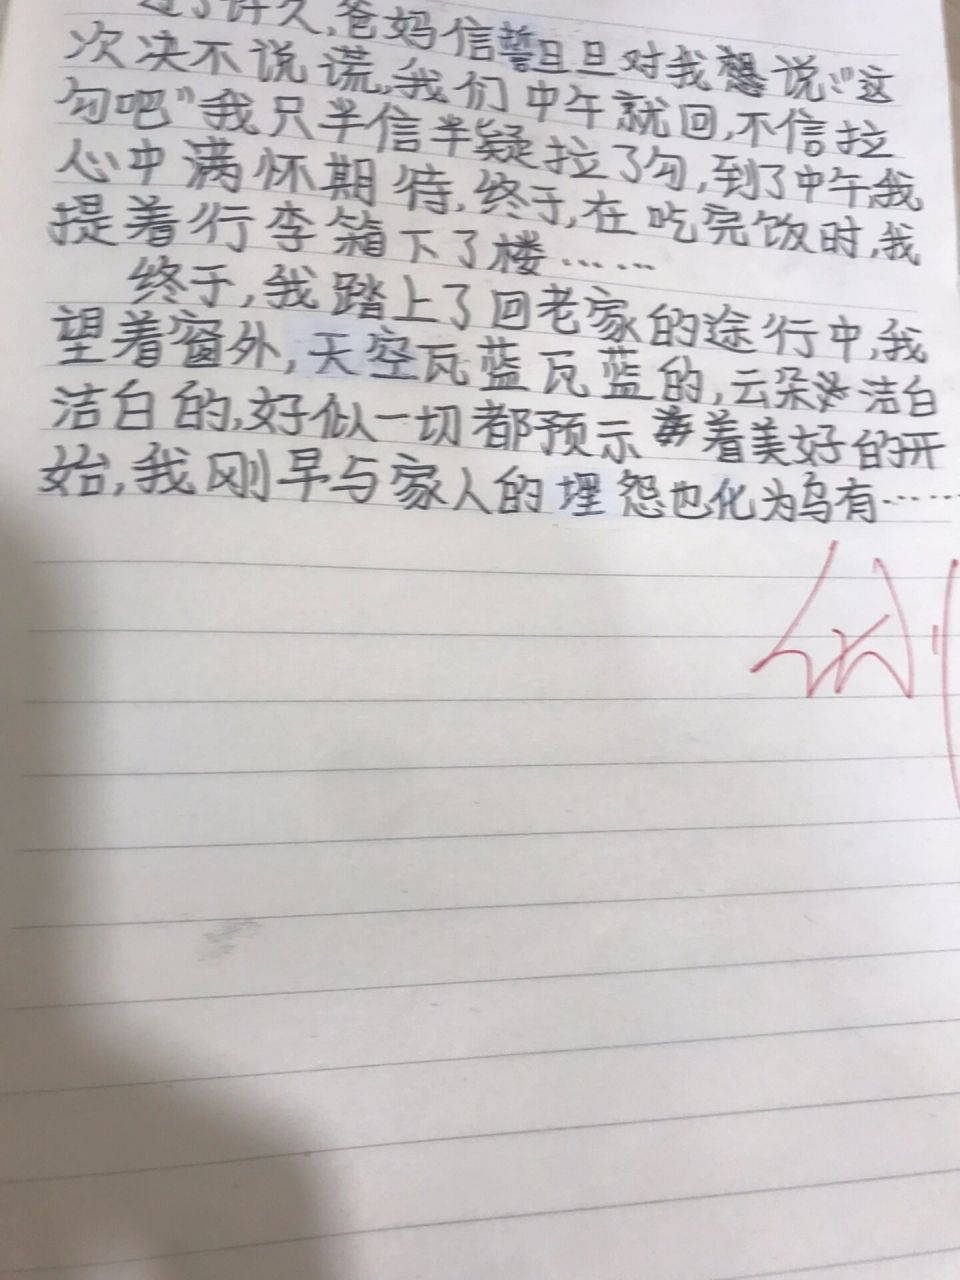 过了许久,爸妈信誓旦旦对我说:"这
次决不说谎,我们中午就回,不信拉
勾吧"我只半信半疑拉了勾,到了中午,我
心中满怀期待,终于,在吃完饭时,我
提着行李箱下了楼……
终于,我踏上了回老家的途行中,我
望着窗外,天空瓦蓝瓦蓝的,云朵洁白
洁白的,好似一切都预示着美好的开
始,我刚早与家人的埋怨也化为乌有……